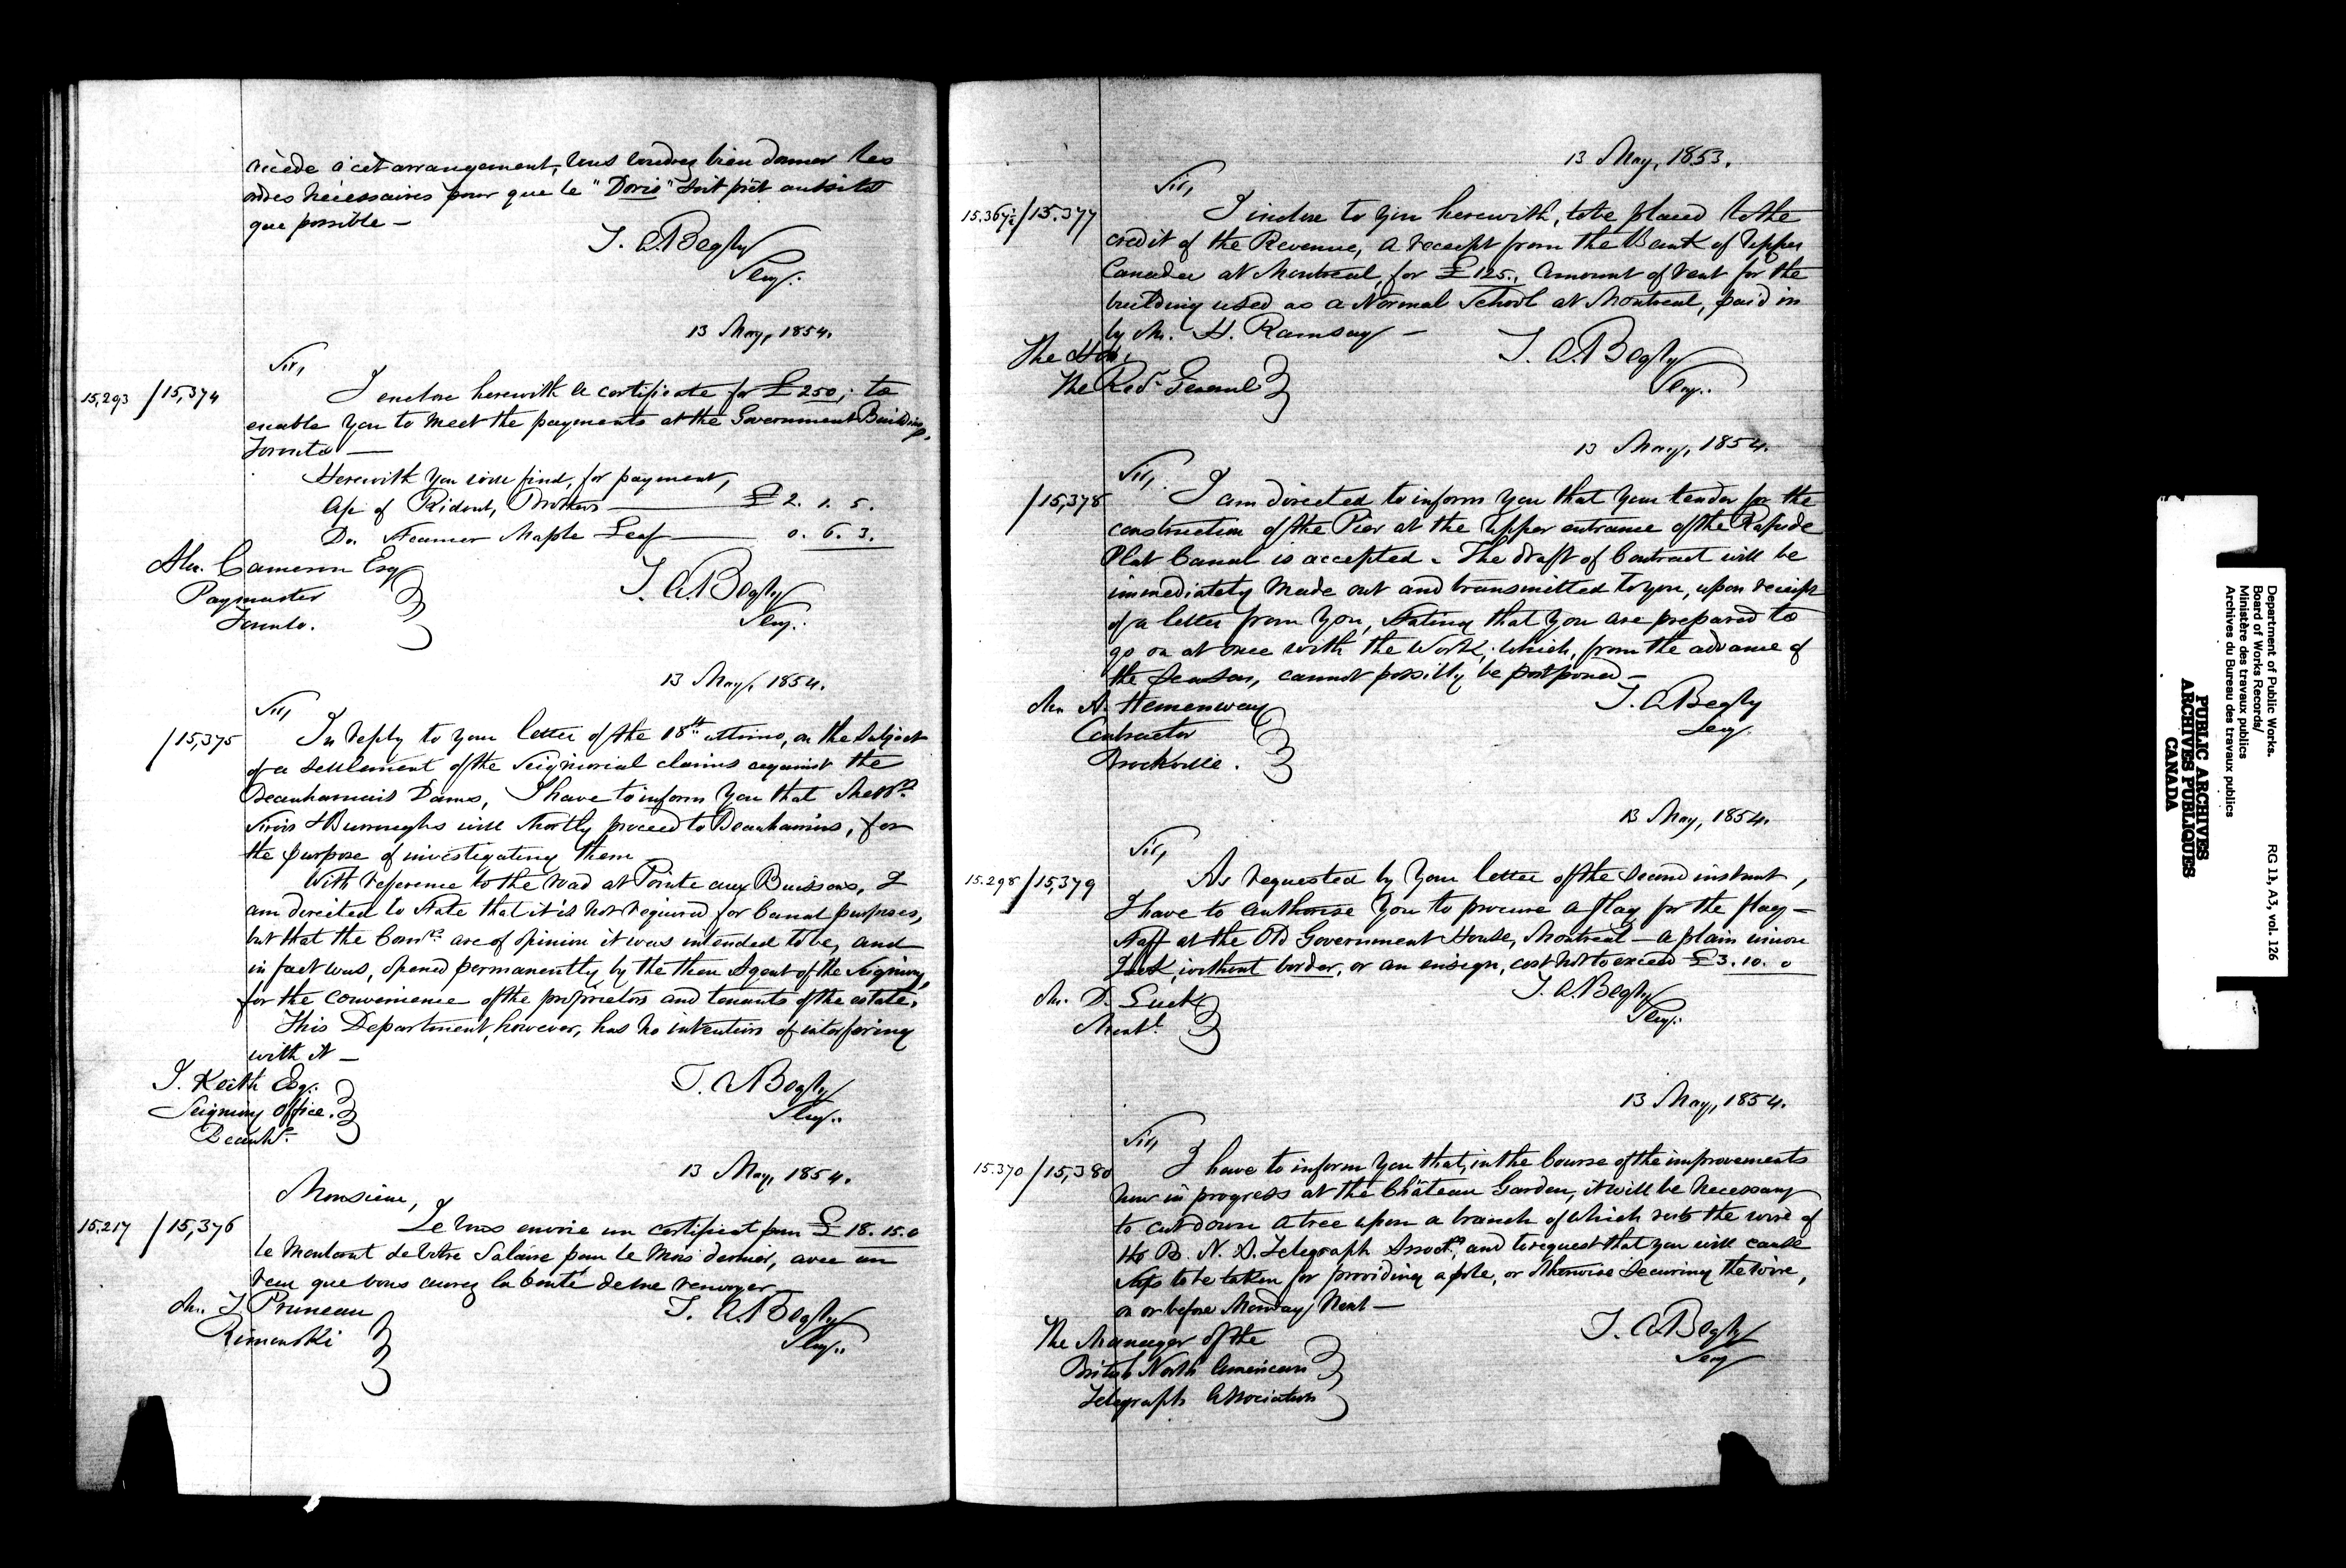 accède à cet arrangement, vous voudrez bien donner les
ordres nécessaires pour que le "Doris" soit prêt aussitôt
que possible —
T. A. Begly
Secy.
13 May, 1854.
Sir,
15,293 / 15,374
I enclose herewith a certificate for £250; to
enable you to meet the payments at the Government Buildings,
Toronto —
Herewith you will find, for payment,
a/c of Ridout, Brothers — £2. 1. 5.
Do. Steamer Maple Leaf — 0. 6. 3.
Alex. Cameron Esq
Paymaster
Toronto.
T. A. Begly
Secy.
13 May, 1854.
Sir,
/ 15,375
In reply to your letter of the 18th ultimo, on the subject
of a settlement of the Seigniorial claims against the
Beauharnois Dams, I have to inform you that Messrs.
Sirois & Burroughs will shortly proceed to Beauharnois, for
the purpose of investigating them
With reference to the road at Pointe aux Buissons, I
am directed to state that it is not required for Canal purposes,
but that the Comrs. are of opinion it was intended to be, and
in fact was, opened permanently by the then Agent of the Seigniory,
for the convenience of the proprietors and tenants of the estate.
This Department, however, has no intention of interfering
with it —
J. Keith Esq.
Seigniory Office.
Beauhs.
T. A. Begly
Secy.
13 May, 1854.
Monsieur,
15.217 / 15,376
Je vous envoie un certificat pour £18. 15. 0
le montant de votre Salaire pour le mois dernier, avec un
recu que vous aurez la bonté de me renvoyer
Mr. J. Pruneau
Rimouski
T. A. Begly
Secy.
13 May, 1853.
Sir,
15.367½ / 15.377
I inclose to you herewith, to be placed to the
credit of the Revenue, a receipt from the Bank of Upper
Canada at Montreal, for £125., amount of rent for the
building used as a Normal School at Montreal, paid in
by Mr. H. Ramsay —
The Hon.
The Recr. General
T. A. Begly
Secy.
13 May, 1854.
Sir,
/ 15,378
I am directed to inform you that your tender for the
construction of the Pier at the upper entrance of the Rapide
Plat Canal is accepted. The draft of Contract will be
immediately made out and transmitted to you, upon receipt
of a letter from you, stating that you are prepared to
go on at once with the work; which, from the advance of
the season, cannot possibly be postponed —
Mr. A. Hemenway
Contractor
Brockville.
T. A. Begly
Secy.
13 May, 1854.
Sir,
15.298 / 15,379
As requested by your letter of the second instant,
I have to authorise you to procure a flag for the flag-
staff at the Old Government House, Montreal — a plain union
Jack, without border, or an ensign, cost not to exceed £3. 10. 0
Mr. D. Luck
Montl.
T. A. Begly
Secy.
13 May, 1854.
Sir,
15.370 / 15,380
I have to inform you that, in the course of the improvements
now in progress at the Château Garden, it will be necessary
to cut down a tree upon a branch of which rests the wire of
the B. N. A. Telegraph Assoctn, and to request that you will cause
steps to be taken for providing a pole, or otherwise securing the wire,
on or before Monday next —
The Manager of the
British North American
Telegraph Association
T. A. Begly
Secy
Department of Public Works.
Board of Works Records/
Ministère des travaux publics
Archives du Bureau des travaux publics
RG 11, A3, vol. 126
PUBLIC ARCHIVES
ARCHIVES PUBLIQUES
CANADA